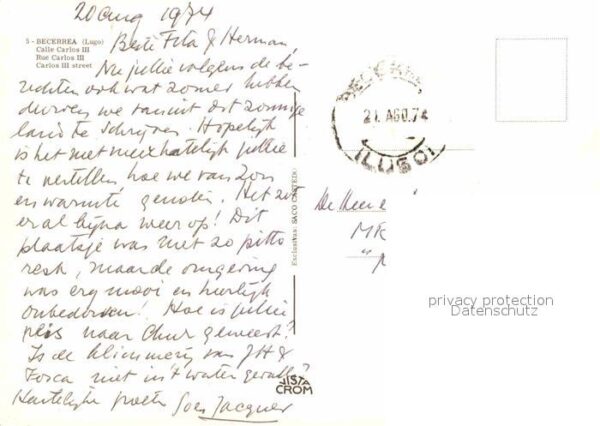 20 Aug 1974
5 - BECERREA (Lugo)
Calle Carlos III
Rue Carlos III
Carlos III street
Beste & Herman,
Nu jullie volgens de be-
richten ook wat zomer hebben
durven we vanuit dit zonnige
land te schrijven. Hopelijk
is het niet meer hatelijk jullie
te vertellen, hoe we van zon
en warmte genoten. Het zit
er al bijna weer op! Dit
plaatsje was niet zo pitto
resk, maar de omgeving
was erg mooi en heerlijk
onbedorven! Hoe is jullie
reis naar Chur geweest?
Is de van JH &
Tosca niet in 't water gevallen?
Hartelijke groeten Jacques
Exclusivas: SACO CASTEDO
VISTA
CROM
BECERREA
21. AGO. 74
(LUGO)
De Heer e
MR
privacy protection
Datenschutz